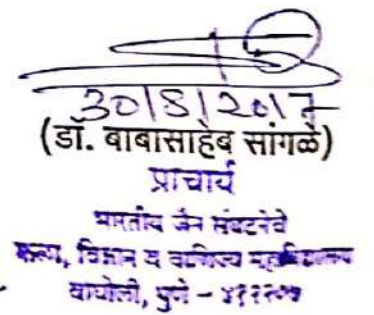 30/8/2017
(डॉ. बाबासाहेब सांगळे)
प्राचार्य
भारतीय जैन संघटनेचे
कला, विज्ञान व वाणिज्य महाविद्यालय
वाघोली, पुणे – ४१२२०७